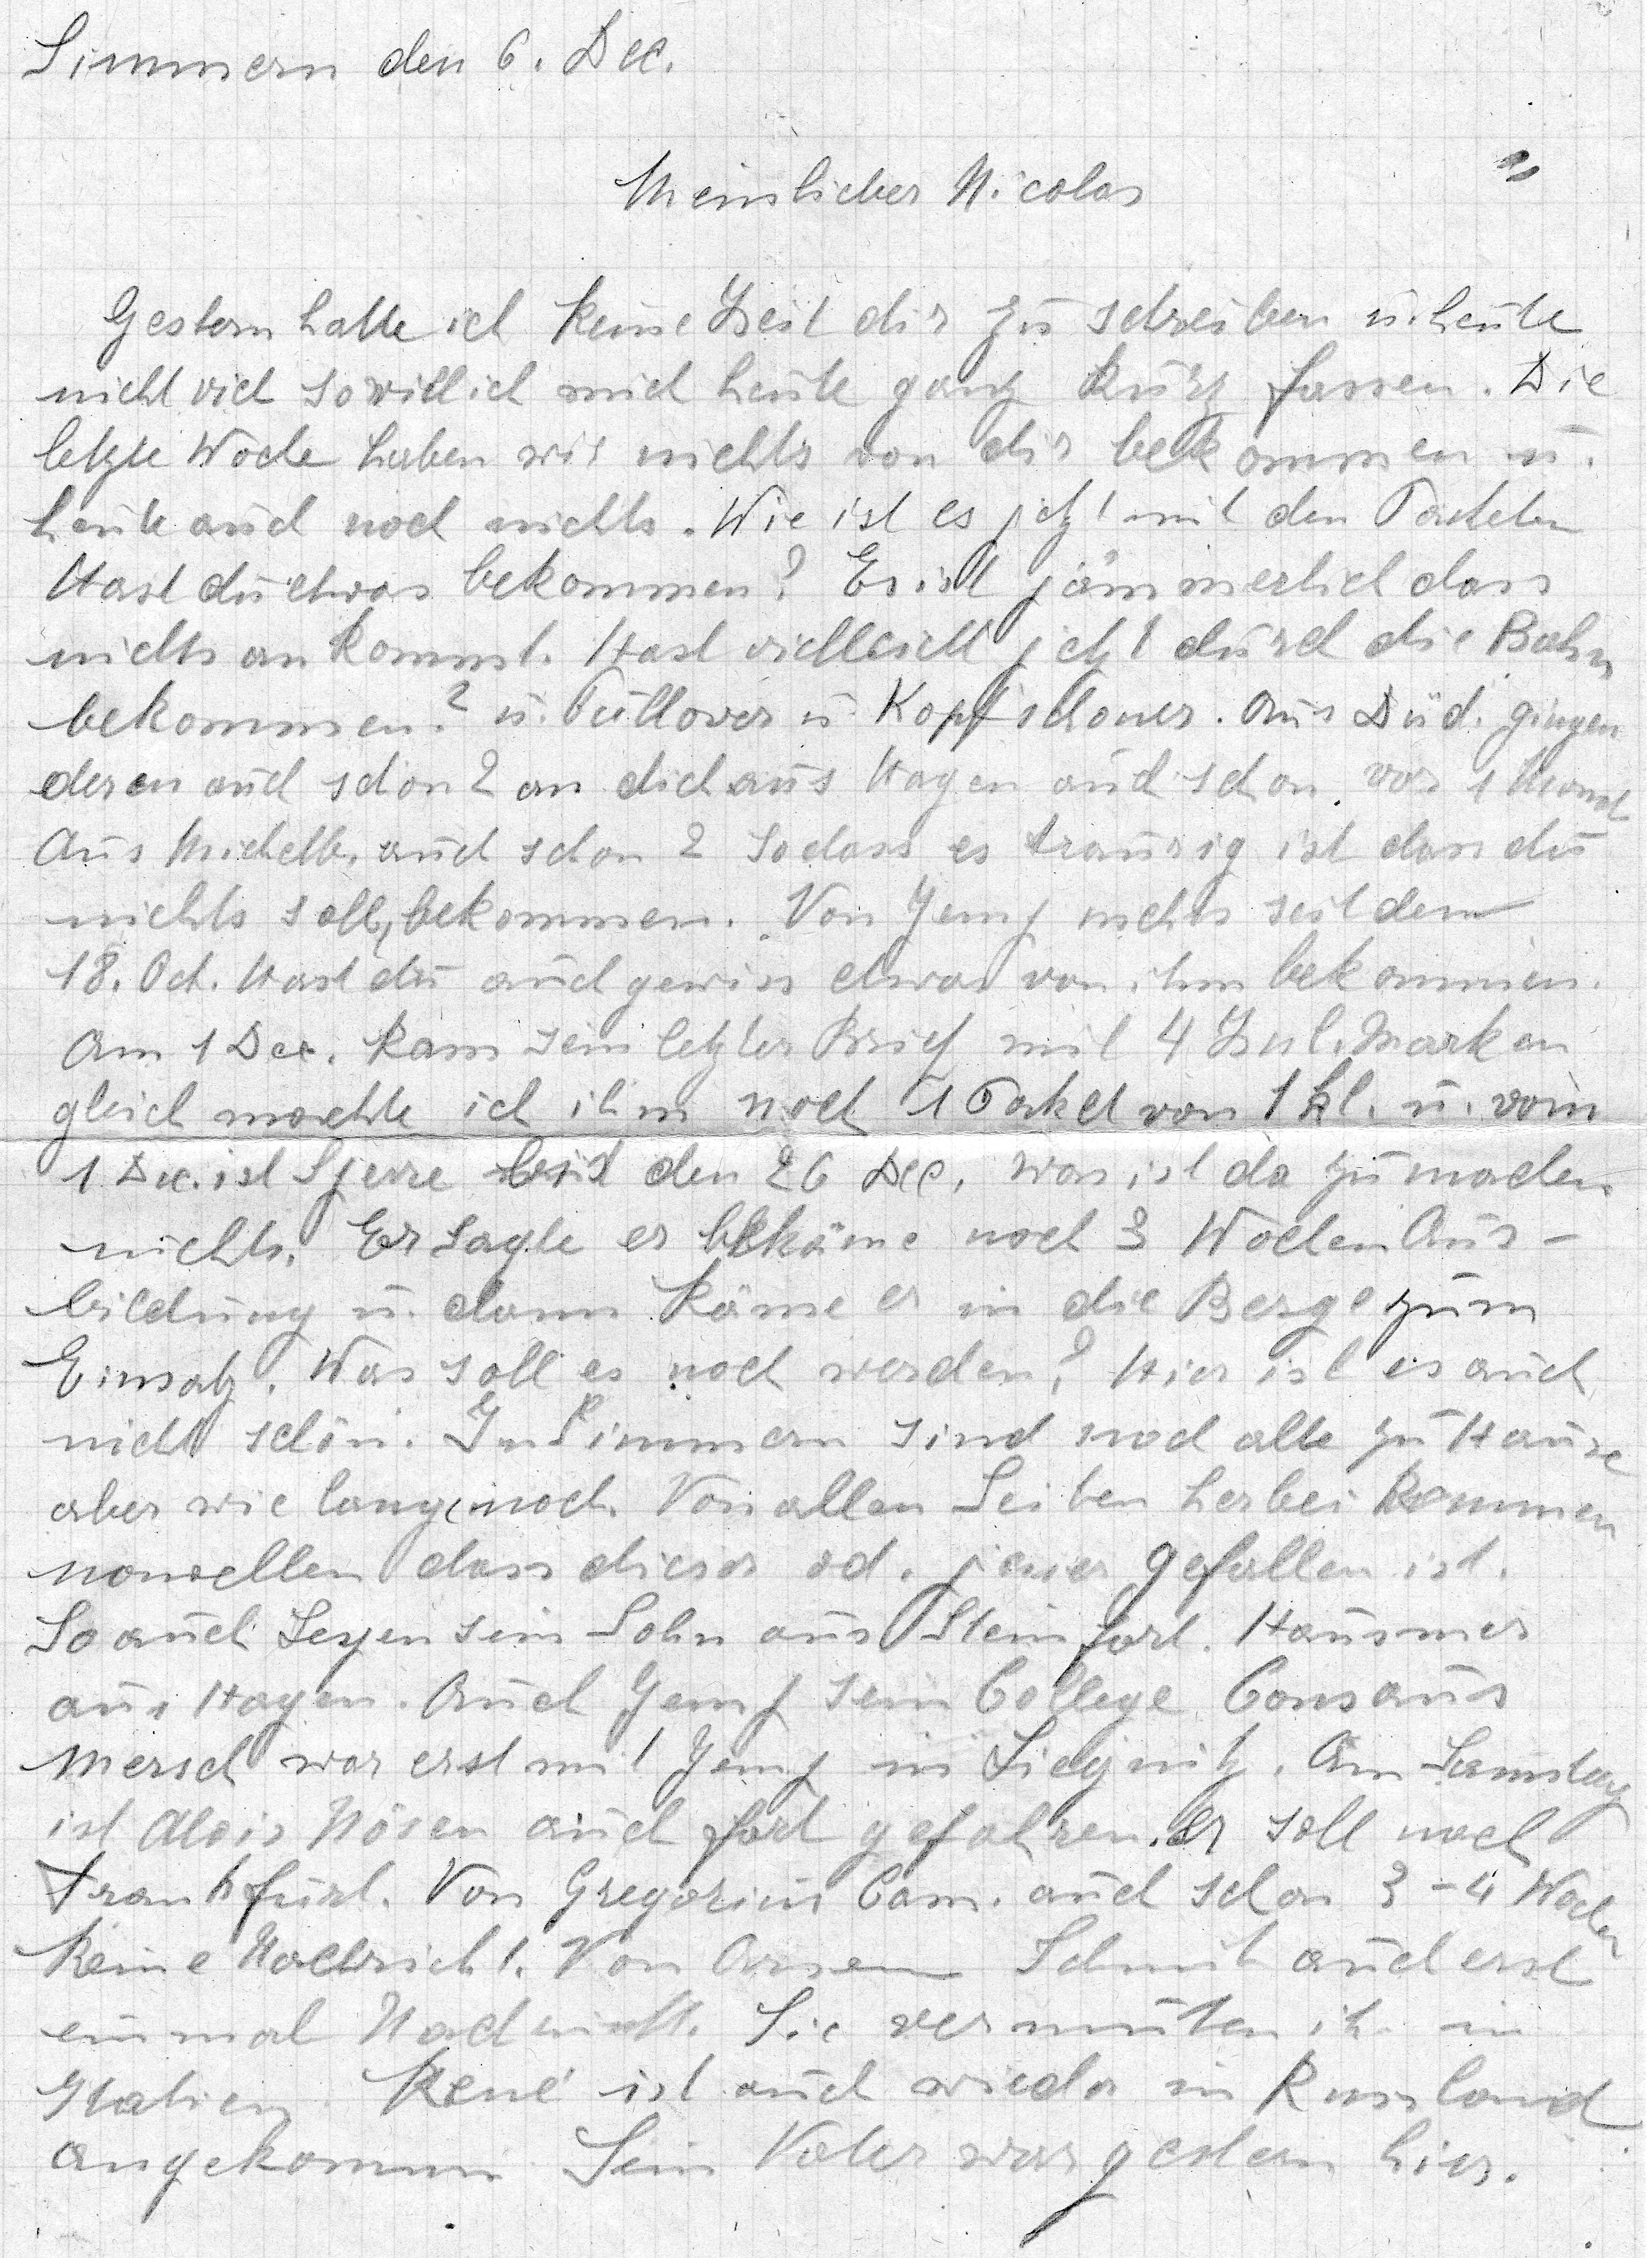 Simmern den 6. Dec.
Mein lieber Nicolas
Gestern hatte ich keine Zeit dir zu schreiben u. heute
nicht viel so will ich mich heute ganz kurz fassen. Die
letzte Woche haben wir nichts von dir bekommen u.
heute auch noch nichts. Wie ist es jetzt mit den Paketen
Hast du etwas bekommen? Es ist jämmerlich dass
nichts ankommt. Hast vielleicht jetzt durch die Bahn
bekommen? u. Pullover u. Kopfschoner. Aus Düd. gingen
deren auch schon 2 an dich aus Hagen auch schon vor 1 Monat
Aus Michelb. auch schon 2 sodass es traurig ist dass du
nichts sollst bekommen. Von Jemp nichts seit dem
18. Oct. Hast du auch gewiss etwas von ihm bekommen.
Am 1 Dec. kam sein letzter Brief mit 4 Zul. Marken
gleich machte ich ihm noch 1 Paket von 1 Kl. u. vom
1 Dec. ist Sperre bis den 26 Dec. was ist da zu machen
nichts. Er sagte er bekäme noch 3 Wochen Aus-
bildung u. dann käme er in die Berge zum
Einsatz. Was soll es noch werden? Hier ist es auch
nicht schön. In Simmern sind noch alle zu Hause
aber wie lange noch. Von allen Seiten herbei kommen
nouvellen dass dieser od. jener gefallen ist.
So auch Seyen sein Sohn aus Steinfort. Hausmer
aus Hagen. Auch Jemp sein College Cons aus
Mersch war erst mit Jemp in Liegnitz. Am Samstag
ist Alois Nösen auch fort gefahren. Er soll nach
Frankfurt. Von Gregorius Cam. auch schon 3-4 Wochen
keine Nachricht. Von Arsen Schmit auch erst
einmal Nachricht. Sie vermuten ihn in
Italien. René ist auch wieder in Russland
angekommen. Sein Vater war gestern hier.